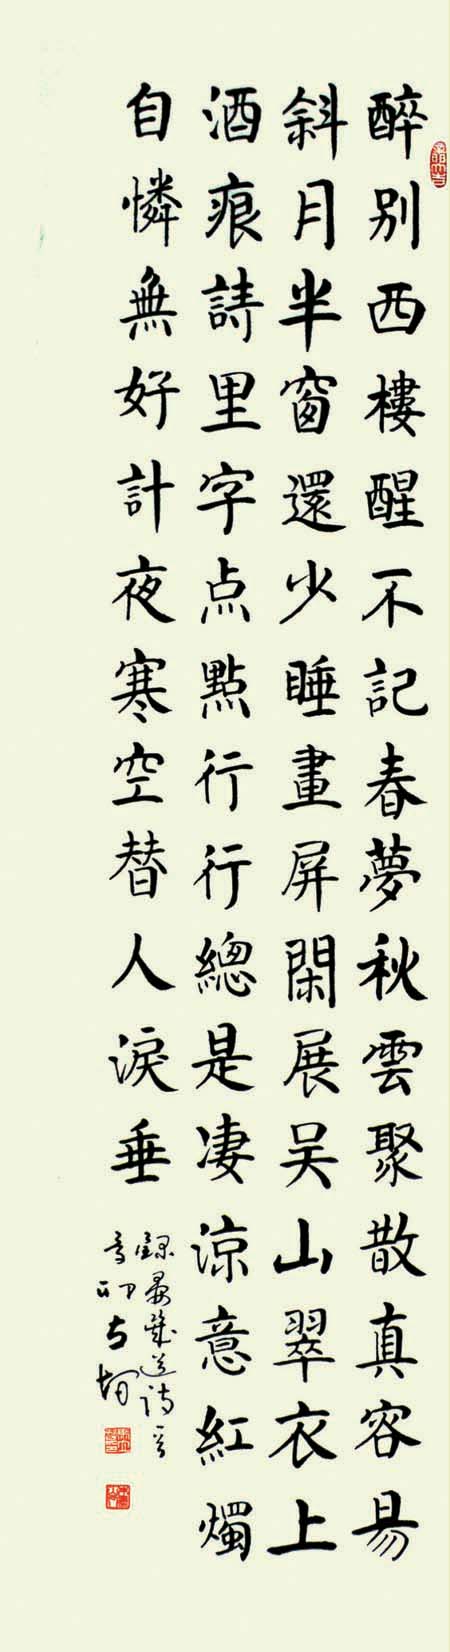 醉別西樓醒不記春夢秋雲聚散真容易
斜月半窗還少睡畫屏閑展吴山翠衣上
酒痕詩里字点點行行總是凄涼意紅燭
自憐無好計夜寒空替人淚垂
錄晏幾道詩